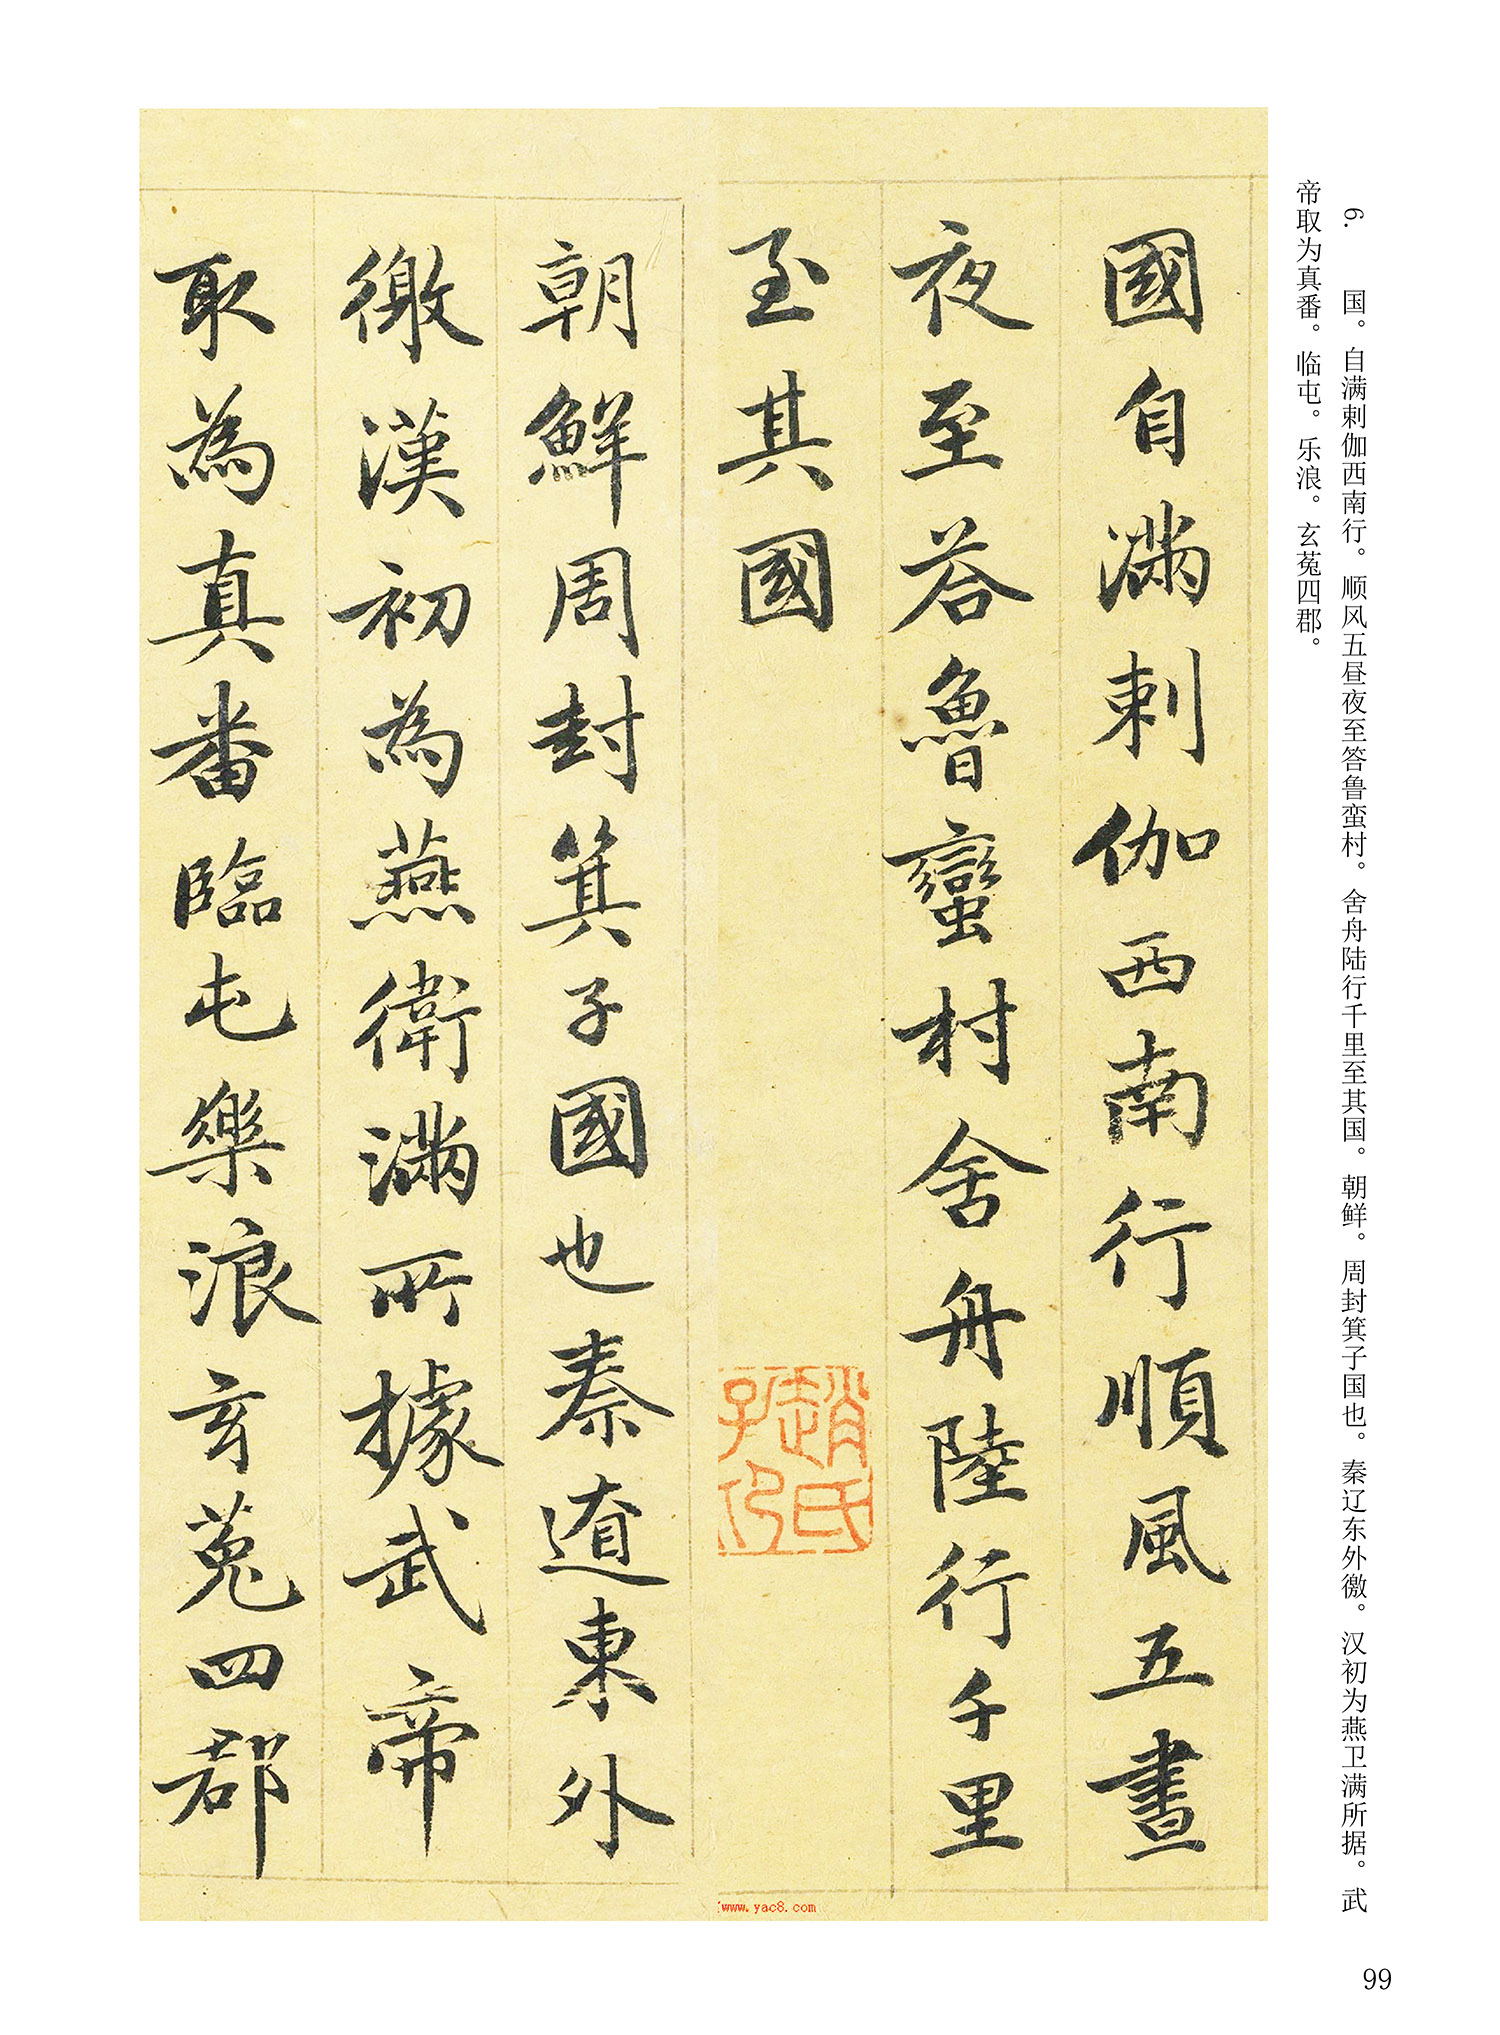 6. 国。自满剌伽西南行。顺风五昼夜至答鲁蛮村。舍舟陆行千里至其国。朝鲜。周封箕子国也。秦辽东外徼。汉初为燕卫满所据。武
帝取为真番。临屯。乐浪。玄菟四郡。
國自滿剌伽西南行順風五晝
夜至荅魯蠻村舍舟陸行千里
至其國
趙氏
子印
朝鮮周封箕子國也秦遼東外
徼漢初為燕衛滿所據武帝
取為真番臨屯樂浪玄菟四郡
www.yac8.com
99